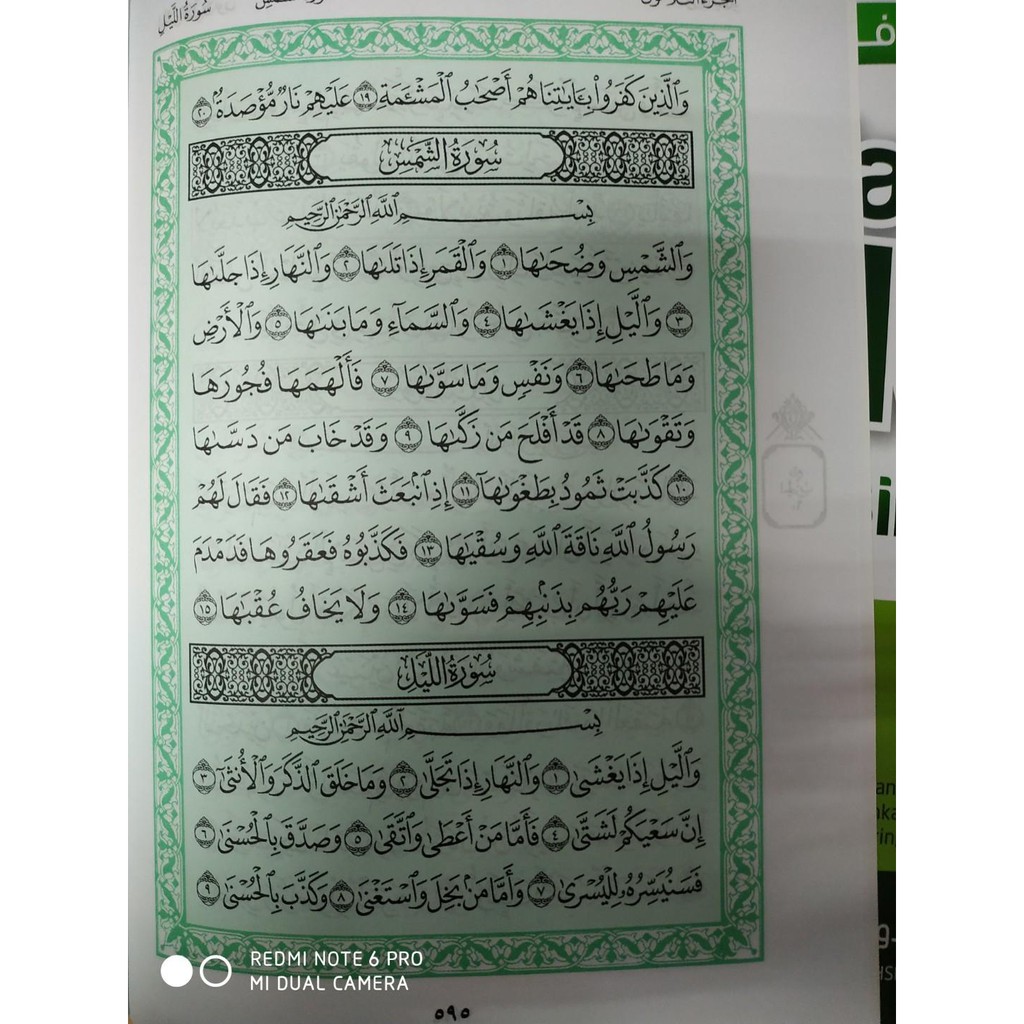 سُورَةُ اللَّيْلِ
وَٱلَّذِينَ كَفَرُوا۟ بِـَٔايَـٰتِنَا هُمْ أَصْحَـٰبُ ٱلْمَشْـَٔمَةِ ١٩ عَلَيْهِمْ نَارٌ مُّؤْصَدَةٌۢ ٢٠
سُورَةُ الشَّمْسِ
بِسْمِ ٱللَّهِ ٱلرَّحْمَـٰنِ ٱلرَّحِيمِ
وَٱلشَّمْسِ وَضُحَىٰهَا ١ وَٱلْقَمَرِ إِذَا تَلَىٰهَا ٢ وَٱلنَّهَارِ إِذَا جَلَّىٰهَا
٣ وَٱلَّيْلِ إِذَا يَغْشَىٰهَا ٤ وَٱلسَّمَآءِ وَمَا بَنَىٰهَا ٥ وَٱلْأَرْضِ
وَمَا طَحَىٰهَا ٦ وَنَفْسٍ وَمَا سَوَّىٰهَا ٧ فَأَلْهَمَهَا فُجُورَهَا
وَتَقْوَىٰهَا ٨ قَدْ أَفْلَحَ مَن زَكَّىٰهَا ٩ وَقَدْ خَابَ مَن دَسَّىٰهَا
١٠ كَذَّبَتْ ثَمُودُ بِطَغْوَىٰهَآ ١١ إِذِ ٱنۢبَعَثَ أَشْقَىٰهَا ١٢ فَقَالَ لَهُمْ
رَسُولُ ٱللَّهِ نَاقَةَ ٱللَّهِ وَسُقْيَـٰهَا ١٣ فَكَذَّبُوهُ فَعَقَرُوهَا فَدَمْدَمَ
عَلَيْهِمْ رَبُّهُم بِذَنۢبِهِمْ فَسَوَّىٰهَا ١٤ وَلَا يَخَافُ عُقْبَـٰهَا ١٥
سُورَةُ اللَّيْلِ
بِسْمِ ٱللَّهِ ٱلرَّحْمَـٰنِ ٱلرَّحِيمِ
وَٱلَّيْلِ إِذَا يَغْشَىٰ ١ وَٱلنَّهَارِ إِذَا تَجَلَّىٰ ٢ وَمَا خَلَقَ ٱلذَّكَرَ وَٱلْأُنثَىٰٓ ٣
إِنَّ سَعْيَكُمْ لَشَتَّىٰ ٤ فَأَمَّا مَنْ أَعْطَىٰ وَٱتَّقَىٰ ٥ وَصَدَّقَ بِٱلْحُسْنَىٰ ٦
فَسَنُيَسِّرُهُۥ لِلْيُسْرَىٰ ٧ وَأَمَّا مَنۢ بَخِلَ وَٱسْتَغْنَىٰ ٨ وَكَذَّبَ بِٱلْحُسْنَىٰ ٩
٥٩٥
REDMI NOTE 6 PRO
MI DUAL CAMERA